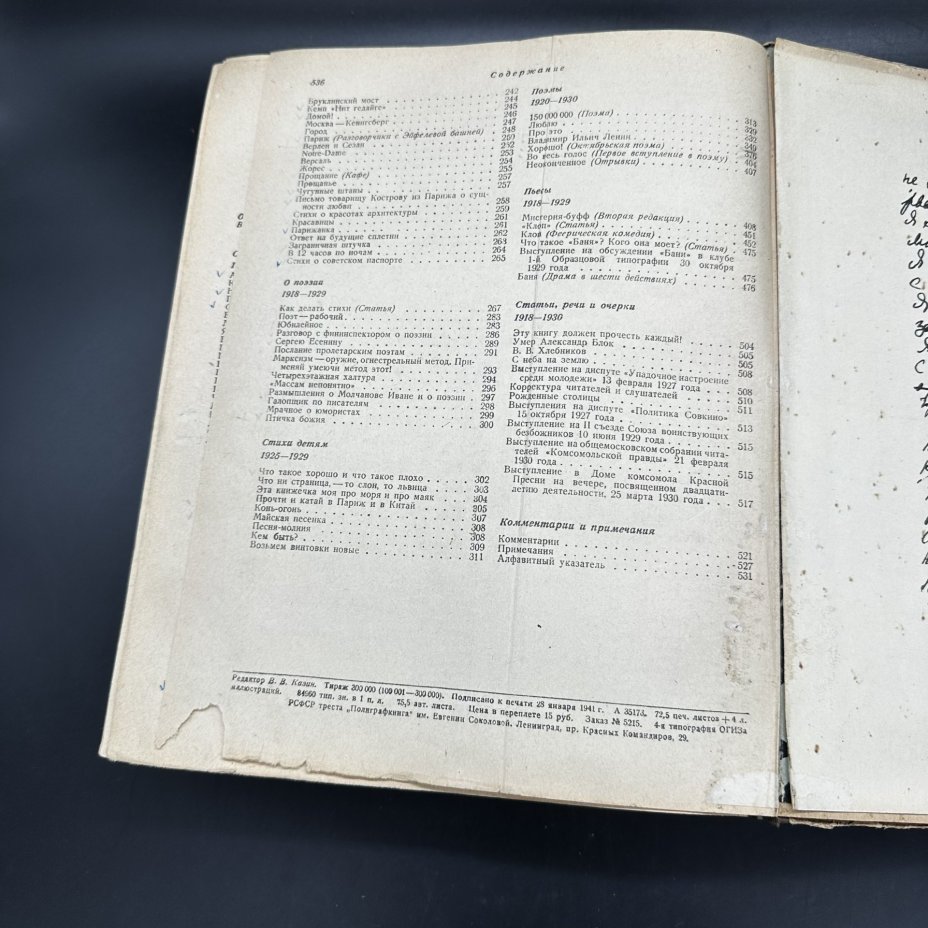 536
Содержание
Бруклинский мост 242
Кемп «Нит гедайге» 244
Домой! 245
Москва — Кенигсберг 246
Город 247
Париж (Разговорчики с Эйфелевой башней) 248
Верлен и Сезан 250
Notre-Dame 252
Версаль 253
Жорес 254
Прощание (Кафе) 255
Прощанье 257
Чугунные штаны 257
Письмо товарищу Кострову из Парижа о сущ-
ности любви 258
Стихи о красотах архитектуры 259
Красавицы 261
Парижанка 261
Ответ на будущие сплетни 262
Заграничная штучка 263
В 12 часов по ночам 264
Стихи о советском паспорте 265
О поэзии
1918—1929
Как делать стихи (Статья) 267
Поэт — рабочий 283
Юбилейное 283
Разговор с фининспектором о поэзии 286
Сергею Есенину 289
Послание пролетарским поэтам 291
Марксизм — оружие, огнестрельный метод. При-
меняй умеючи метод этот! 293
Четырехэтажная халтура 294
«Массам непонятно» 296
Размышления о Молчанове Иване и о поэзии 297
Галопщик по писателям 298
Мрачное о юмористах 299
Птичка божия 300
Стихи детям
1925—1929
Что такое хорошо и что такое плохо 302
Что ни страница, — то слон, то львица 303
Эта книжечка моя про моря и про маяк 304
Прочти и катай в Париж и в Китай 305
Конь-огонь 307
Майская песенка 308
Песня-молния 308
Кем быть? 309
Возьмем винтовки новые 311
Поэмы
1920—1930
150 000 000 (Поэма) 313
Люблю 329
Про это 332
Владимир Ильич Ленин 349
Хорошо! (Октябрьская поэма) 376
Во весь голос (Первое вступление в поэму) 404
Неоконченное (Отрывки) 407
Пьесы
1918—1929
Мистерия-буфф (Вторая редакция) 408
«Клоп» (Статья) 451
Клоп (Феерическая комедия) 452
Что такое «Баня»? Кого она моет? (Статья) 475
Выступление на обсуждении «Бани» в клубе
1-й Образцовой типографии 30 октября
1929 года 475
Баня (Драма в шести действиях) 476
Статьи, речи и очерки
1918—1930
Эту книгу должен прочесть каждый! 504
Умер Александр Блок 505
В. В. Хлебников 505
С неба на землю 508
Выступление на диспуте «Упадочное настроение
среди молодежи» 13 февраля 1927 года 508
Корректура читателей и слушателей 510
Рожденные столицы 511
Выступления на диспуте «Политика Совкино»
15 октября 1927 года 513
Выступление на II съезде Союза воинствующих
безбожников 10 июня 1929 года 515
Выступление на общемосковском собрании чита-
телей «Комсомольской правды» 21 февраля
1930 года 515
Выступление в Доме комсомола Красной
Пресни на вечере, посвященном двадцати-
летию деятельности, 25 марта 1930 года 517
Комментарии и примечания
Комментарии 521
Примечания 527
Алфавитный указатель 531
Редактор В. В. Казин. Тираж 200 000 (100 001—300 000). Подписано к печати 28 января 1941 г. А 35173. 72,5 печ. листов + 4 л.
иллюстраций. 84960 тип. зн. в 1 п. л. 75,5 авт. листа. Цена в переплете 15 руб. Заказ № 5215. 4-я типография ОГИЗа
РСФСР треста „Полиграфкнига" им. Евгении Соколовой. Ленинград, пр. Красных Командиров, 29.